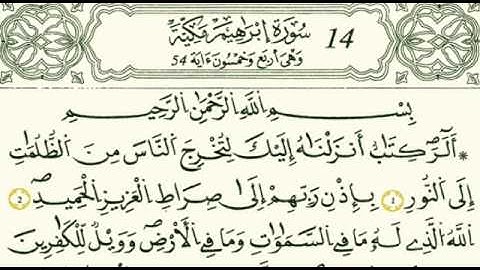 سُورَةُ إِبْرَاهِيمَ مَكِّيَّةٌ 14
وَهِيَ أَرْبَعٌ وَخَمْسُونَ ءَايَةً 54
بِسْمِ اللَّهِ الرَّحْمَٰنِ الرَّحِيمِ
* أَلَٓرۖ كِتَٰبٌ أَنزَلْنَٰهُ إِلَيْكَ لِتُخْرِجَ اَلنَّاسَ مِنَ اَلظُّلُمَٰتِ
إِلَى اَلنُّورِ 1 بِإِذْنِ رَبِّهِمْ إِلَىٰ صِرَٰطِ اِلْعَزِيزِ اِلْحَمِيدِۖ 2
اِللَّهُ اُلَّذِے لَهُۥ مَا فِے اِلسَّمَٰوَٰتِ وَمَا فِے اِلْأَرْضِۖ وَوَيْلٌ لِّلْكَٰفِرِينَ